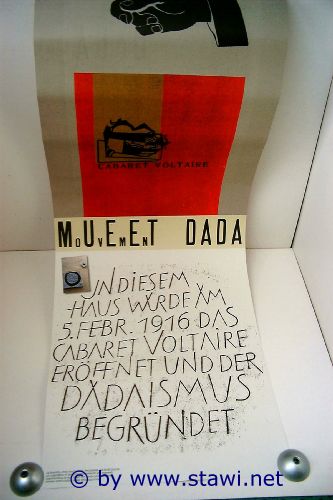 CABARET VOLTAIRE
MOUVEMENT DADA
IN DIESEM
HAUS WURDE AM
5. FEBR. 1916 DAS
CABARET VOLTAIRE
ERÖFFNET UND DER
DADAISMUS
BEGRÜNDET
© by www.stawi.net